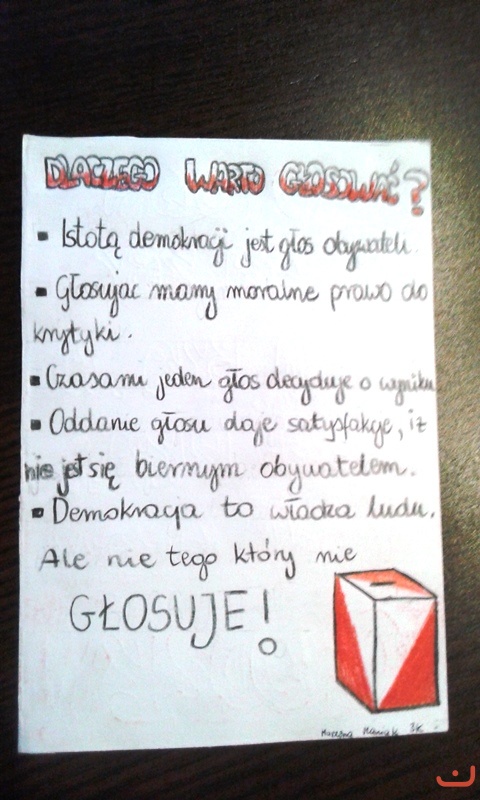 DLACZEGO WARTO GŁOSOWAĆ?
▪ Istotą demokracji jest głos obywateli.
▪ Głosując mamy moralne prawo do
krytyki.
▪ Czasami jeden głos decyduje o wyniku
▪ Oddanie głosu daje satysfakcje, iż
nie jest się biernym obywatelem.
▪ Demokracja to władza ludu.
Ale nie tego który nie
GŁOSUJE!